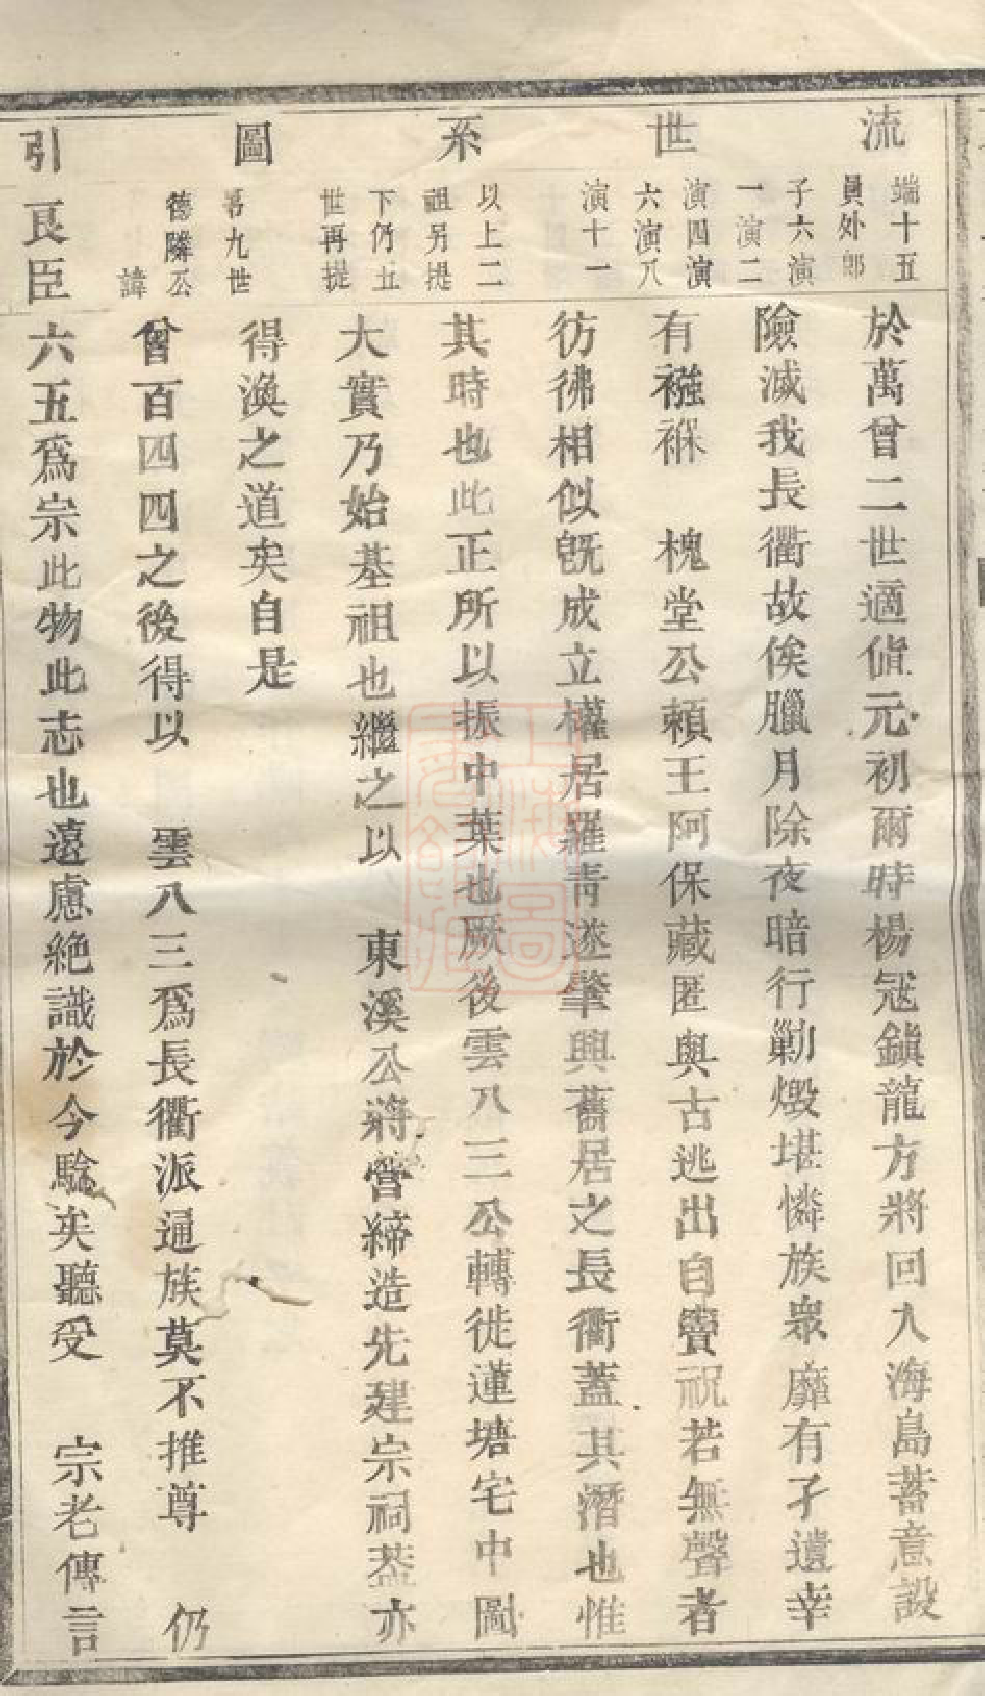 流世系圖引
端十五
員外郎
子六演
一演二
演四演
六演八
演十一
以上二
祖另提
下仍五
世再提
第九世
德隣公
諱
良臣
於萬曾二世適值元初爾時楊冦鎮龍方將回入海島蓄意設
險滅我長衢故俟臘月除夜暗行勦燬堪憐族衆靡有孑遺幸
有襁褓 槐堂公賴王阿保藏匿與古逃出自竇祝若無聲者
彷彿相似旣成立權居羅靑遂肇興舊居之長衢蓋其潛也惟
其時也此正所以振中葉也厥後雲八三公轉徙蓮塘宅中圖
大實乃始基祖也繼之以 東溪公將營締造先建宗祠葢亦
得渙之道矣自是
曾百四四之後得以 雲八三爲長衢派通族莫不推尊 仍
六五爲宗此物此志也遠慮絶識於今驗矣聽受 宗老傳言